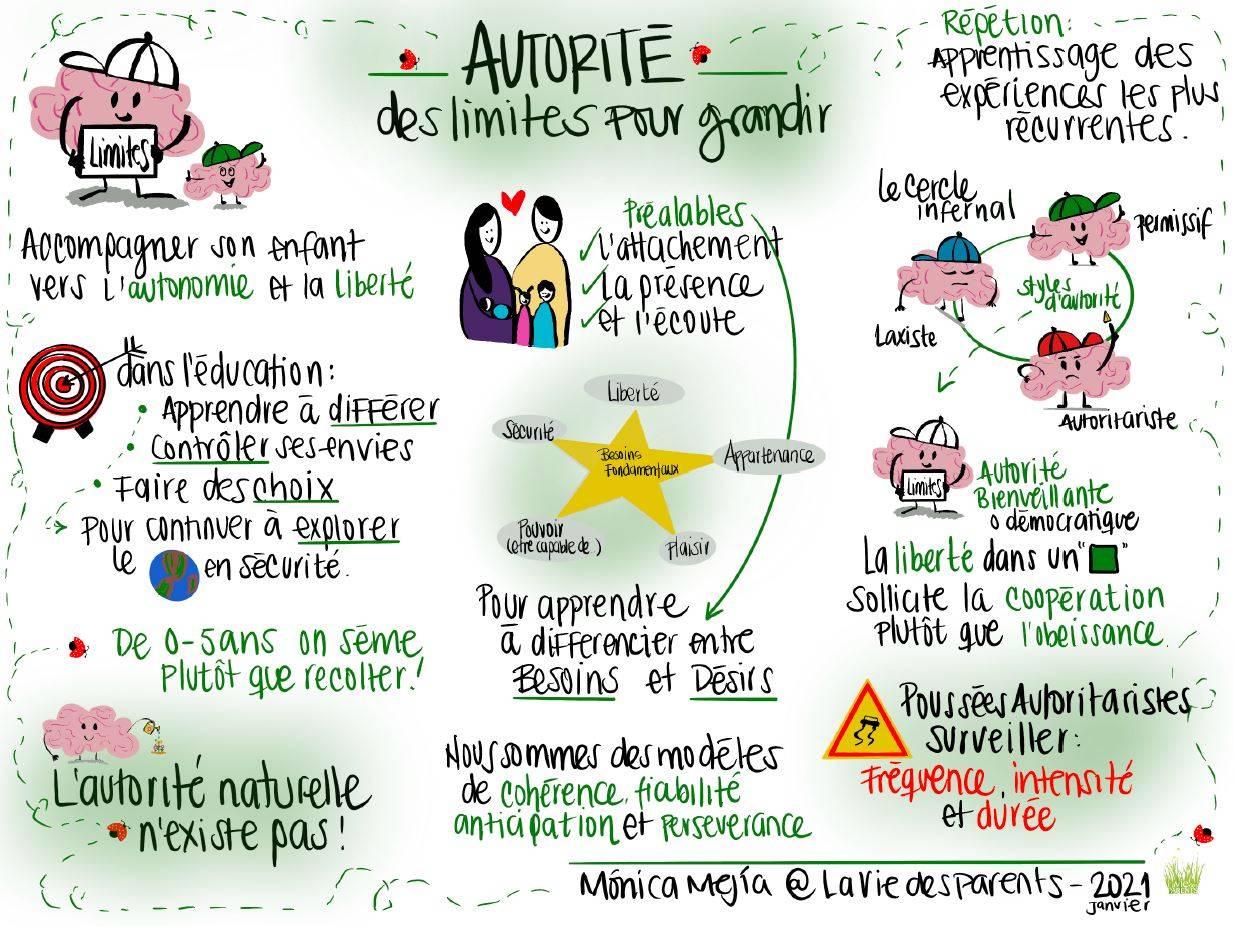 AUTORITÉ
des limites pour grandir
Limites
Accompagner son enfant
vers l'autonomie et la liberté
dans l'éducation:
• Apprendre à différer
• Contrôler ses envies
• Faire des choix
Pour continuer à explorer
le en sécurité.
De 0-5ans on sème
Plutôt que recolter!
L'autorité naturelle
n'existe pas!
Préalables
✓ L'attachement
✓ La présence
✓ et l'écoute
Liberté
Sécurité
Besoins
Fondamentaux
Appartenance
Pouvoir
(etre capable de )
Plaisir
Pour apprendre
à différencier entre
Besoins et Désirs
Nous sommes des modèles
de cohérence, fiabilité
anticipation et perseverance
Répétion:
Apprentissage des
expériences les plus
récurrentes.
Le Cercle
infernal
Permissif
styles
d'autorité
Laxiste
Autoritariste
Limites
Autorité
Bienveillante
o démocratique
La liberté dans un " "
Sollicite la coopération
Plutôt que l'obeissance.
Poussées Autoritaristes
surveiller:
Fréquence, intensité
et durée
Mónica Mejía @ La Vie des Parents - 2021
janvier